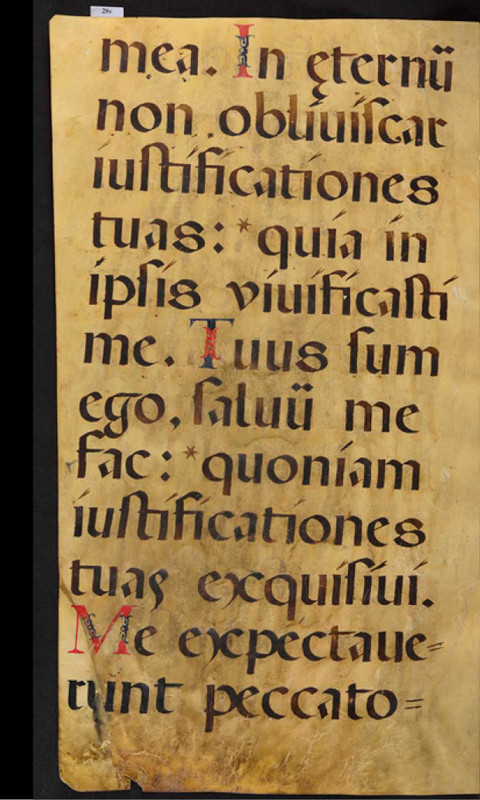 mea. In ęternű
non obliuiſcar
iuſtificationes
tuas: *quia in
ipſis viuificaſti
me. Tuus ſum
ego, ſaluű me
fac: *quoniam
iuſtificationes
tuas exquiſiui.
Me expectaue=
runt peccato=